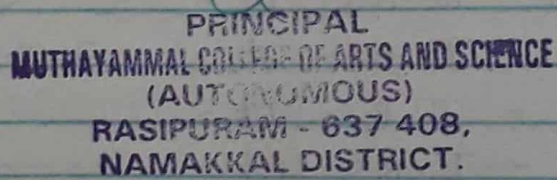 PRINCIPAL
MUTHAYAMMAL COLLEGE OF ARTS AND SCIENCE
(AUTONOMOUS)
RASIPURAM - 637 408,
NAMAKKAL DISTRICT.